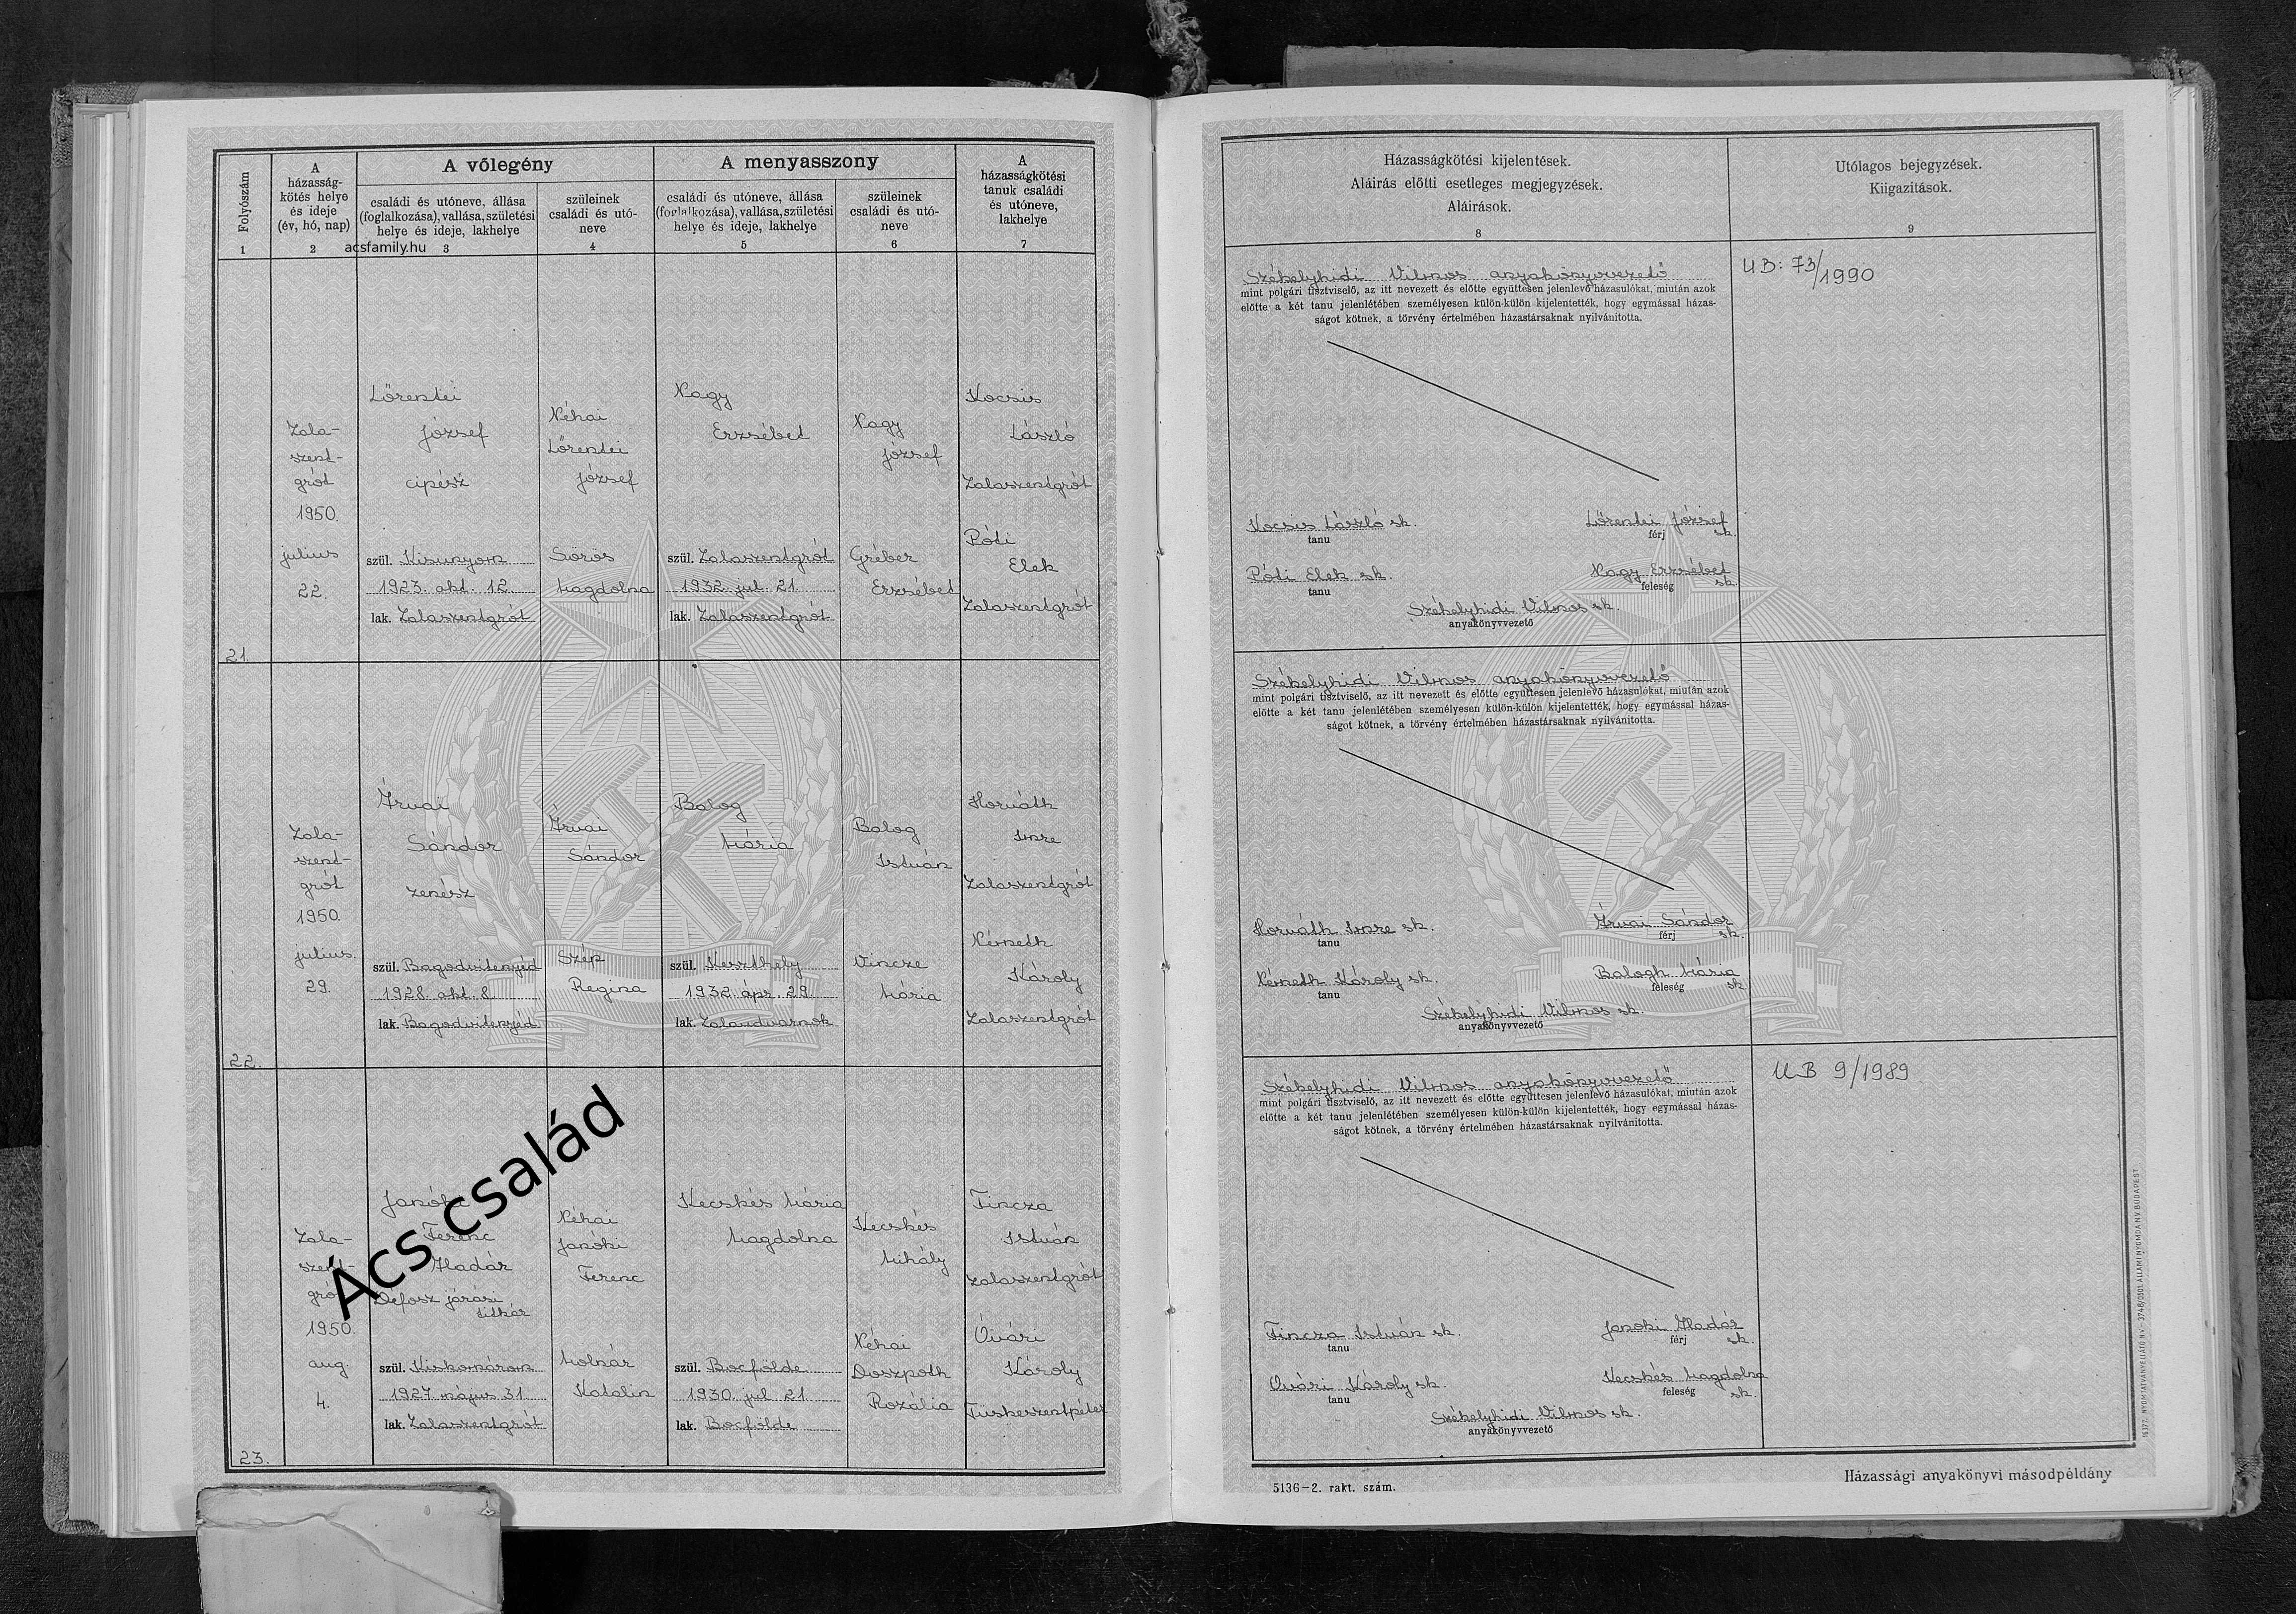 Folyószám
1
A
házasság-
kötés helye
és ideje
(év, hó, nap)
2
A vőlegény
családi és utóneve, állása
(foglalkozása), vallása, születési
helye és ideje, lakhelye
acsfamily.hu
3
szüleinek
családi és utó-
neve
4
A menyasszony
családi és utóneve, állása
(foglalkozása), vallása, születési
helye és ideje, lakhelye
5
szüleinek
családi és utó-
neve
6
A
házasságkötési
tanuk családi
és utóneve,
lakhelye
7
21.
Zala-
szent-
grót
1950.
julius
22.
Lőrentei
József
cipész
szül. Kisunyom
1923. okt. 12.
lak. Zalaszentgrót
Néhai
Lőrentei
József
Sörös
Magdolna
Nagy
Erzsébet
szül. Zalaszentgrót
1932. jul. 21.
lak. Zalaszentgrót
Nagy
József
Gréber
Erzsébet
Kocsis
László
Zalaszentgrót
Póti
Elek
Zalaszentgrót
22.
Zala-
szent-
grót
1950.
julius.
29.
Árvai
Sándor
zenész
szül. Bagodvitenyéd
1928. okt. 8.
lak. Bagodvitenyéd
Árvai
Sándor
Szép
Regina
Balog
Mária
szül. Keszthely
1932. ápr. 29.
lak. Zalaudvarnok
Balog
István
Vincze
Mária
Horváth
Imre
Zalaszentgrót
Németh
Károly
Zalaszentgrót
23.
Zala-
szent-
grót
1950.
aug.
4.
Janóki
Ferenc
Aladár
Défosz járási
titkár
szül. Kiskomárom
1927 május 31
lak. Zalaszentgrót
Néhai
Janóki
Ferenc
Molnár
Katalin
Kecskés Mária
Magdolna
szül. Bocfölde
1930. jul. 21.
lak. Bocfölde
Kecskés
Mihály
Néhai
Doszpoth
Rozália
Tincza
István
Zalaszentgrót
Óvári
Károly
Tüskeszentpéter
Ács család
Házasságkötési kijelentések.
Aláirás előtti esetleges megjegyzések.
Aláirások.
8
Utólagos bejegyzések.
Kiigazitások.
9
Székelyhidi Vilmos anyakönyvvezető
mint polgári tisztviselő, az itt nevezett és előtte együttesen jelenlevő házasulókat, miután azok
előtte a két tanu jelenlétében személyesen külön-külön kijelentették, hogy egymással házas-
ságot kötnek, a törvény értelmében házastársaknak nyilvánitotta.
UB: 73/1990
Kocsis László sk.
tanu
Lőrentei József
férj
sk.
Póti Elek sk.
tanu
Nagy Erzsébet
feleség
sk.
Székelyhidi Vilmos sk.
anyakönyvvezető
Székelyhidi Vilmos anyakönyvvezető
mint polgári tisztviselő, az itt nevezett és előtte együttesen jelenlevő házasulókat, miután azok
előtte a két tanu jelenlétében személyesen külön-külön kijelentették, hogy egymással házas-
ságot kötnek, a törvény értelmében házastársaknak nyilvánitotta.
Horváth Imre sk.
tanu
Árvai Sándor
férj
sk.
Németh Károly sk.
tanu
Balogh Mária
feleség
sk
Székelyhidi Vilmos sk.
anyakönyvvezető
Székelyhidi Vilmos anyakönyvvezető
mint polgári tisztviselő, az itt nevezett és előtte együttesen jelenlevő házasulókat, miután azok
előtte a két tanu jelenlétében személyesen külön-külön kijelentették, hogy egymással házas-
ságot kötnek, a törvény értelmében házastársaknak nyilvánitotta.
UB 9/1989
Tincza István sk.
tanu
Janoki Aladár
férj
sk.
Ovári Károly sk.
tanu
Kecskés Magdolna
feleség
sk.
Székelyhidi Vilmos sk.
anyakönyvvezető
5136-2. rakt. szám.
Házassági anyakönyvi másodpéldány